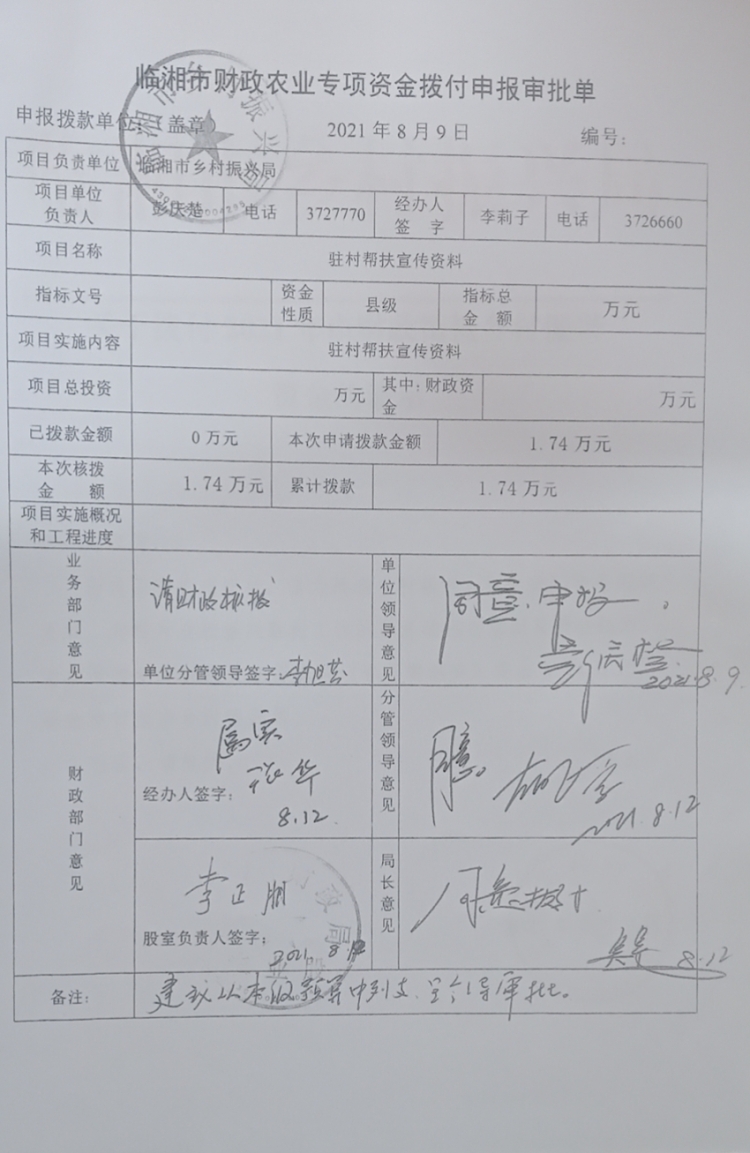 临湘市财政农业专项资金拨付申报审批单
申报拨款单位:(盖章) 2021年8月9日 编号:
项目负责单位 临湘市乡村振兴局
项目单位负责人 彭庆楚 电话 3727770 经办人签字 李莉子 电话 3726660
项目名称 驻村帮扶宣传资料
指标文号 资金性质 县级 指标总金额 万元
项目实施内容 驻村帮扶宣传资料
项目总投资 万元 其中:财政资金 万元
已拨款金额 0万元 本次申请拨款金额 1.74万元
本次核拨金额 1.74万元 累计拨款 1.74万元
项目实施概况和工程进度
业务部门意见 请财政核拨 单位分管领导签字: 单位领导意见 同意申报。 彭庆楚 2021.8.9
财政部门意见 属实 经办人签字: 张华 8.12 分管领导意见 同意。 2021.8.12
李正朋 股室负责人签字: 2021.8.12 局长意见 同意拨付 8.12
备注: 建议从本级预算中列支,呈领导审批。